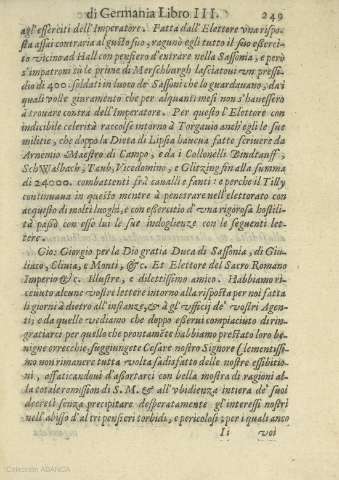 di Germania Libro III. 249
agl'esserciti dell'Imperatore. Fatta dall'Elettore vna rispo-
sta assai contraria al gusto suo, ragunò egli tutto il suo esserci-
to vicino ad Hall con pensiero d'entrare nella Sassonia, e però
s'impatronì sù le prime di Merschburgh lasciatoui vn presi-
dio di 400. soldati in luoco de' Sassoni che lo guardauano, da i
quali volle giuramento che per alquanti mesi non s'hauessero
à trouare contra dell'Imperatore. Per questo l'Elettore con
indicibile celerità raccolse intorno à Torgauio anch'egli le sue
militie, che doppo la Dieta di Lipsia haueua fatte scriuere da
Arnemio Maestro di Campo, e da i Collonelli Bindtauff,
SchWalbach, Taub, Vicedomino, e Glitzing fin alla summa
di 24000. combattenti frà caualli e fanti: e perche il Tilly
continuaua in questo mentre à penetrare nell'elettorato con
acquisto di molti luoghi, e con essercitio d'vna rigorosa hostili-
tà passò con esso lui le sue indoglienze con le seguenti let-
tere.
Gio: Giorgio per la Dio gratia Duca di Sassonia, di Giu-
liaco, Cliuia, e Monti, &c. Et Elettore del Sacro Romano
Imperio &c. Illustre, e dilettissimo amico. Habbiamo ri-
ceuuto alcune vostre lettere intorno alla risposta per noi fatta
li giorni à dietro all'instanze, & à gl'vfficij de' vostri Agen-
ti; e da quelle vediamo che doppo esserui compiaciuto di rin-
gratiarci per quello che prontamēte habbiamo prestato loro be-
nigne orrecchie, suggiungete Cesare nostro Signore Clementissi-
mo non rimanere tutta volta sudisfatto delle nostre essibitio-
ni, offaticandoui d'assortarci con bella mostra di ragioni al-
la totale remission di S. M. & all'vbidienza intiera de' suoi
decreti senza precipitare desperatamente gl'interessi nostri
nell'abisso d'altri pensieri torbidi, e pericolosi; per i quali anco
Ii voi
Colección ABANCA